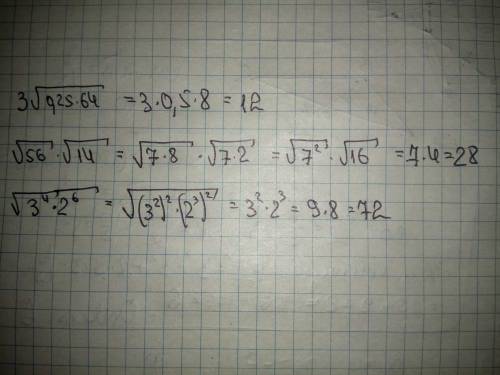 3√0,25·64 = 3·0,5·8 = 12
√56·√14 = √7·8·√7·2 = √7²·√16 = 7·4=28
√3⁴·2⁶ = √(3²)²·(2³)² = 3²·2³ = 9·8 =72